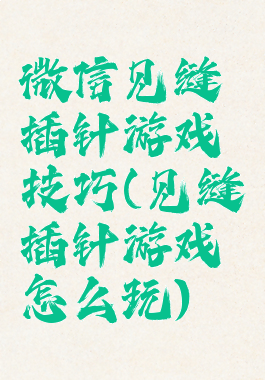 微信见缝
插针游戏
技巧(见缝
插针游戏
怎么玩)